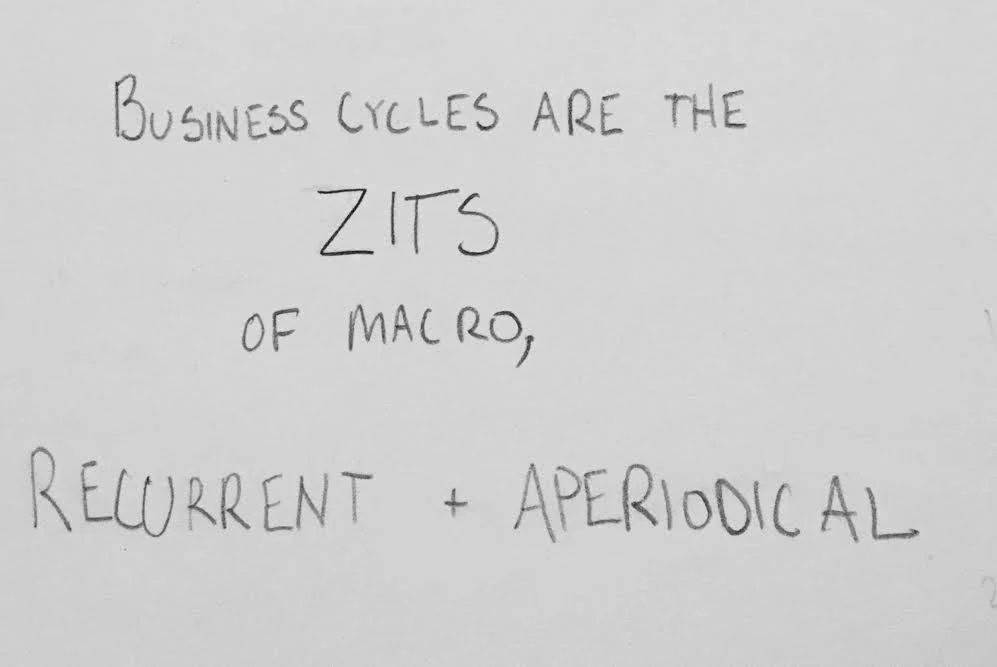 BUSINESS CYCLES ARE THE
ZITS
OF MACRO,
RECURRENT + APERIODICAL